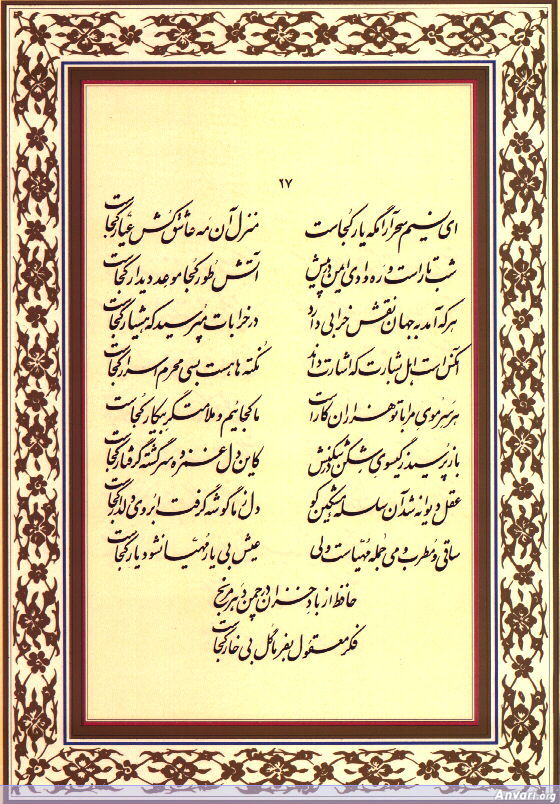 ۲۷
ای نسیم سحر آرامگه یار کجاست منزل آن مه عاشق کش عیار کجاست
شب تار است و ره وادی ایمن در پیش آتش طور کجا موعد دیدار کجاست
هر که آمد به جهان نقش خرابی دارد در خرابات مپرسید که هشیار کجاست
آنکس است اهل بشارت که اشارت داند نکته ها هست بسی محرم اسرار کجاست
هر سر موی مرا با تو هزاران کار است ما کجائیم و ملامتگر بیکار کجاست
باز پرسید ز گیسوی شکن در شکنش کاین دل غمزده سرگشته گرفتار کجاست
عقل دیوانه شد آن سلسله مشکین کو دل ز ما گوشه گرفت ابروی دلدار کجاست
ساقی و مطرب و می جمله مهیاست ولی عیش بی یار مهیا نشود یار کجاست
حافظ از باد خزان در چمن دهر مرنج
فکر معقول بفرما گل بی خار کجاست
Anvari.org